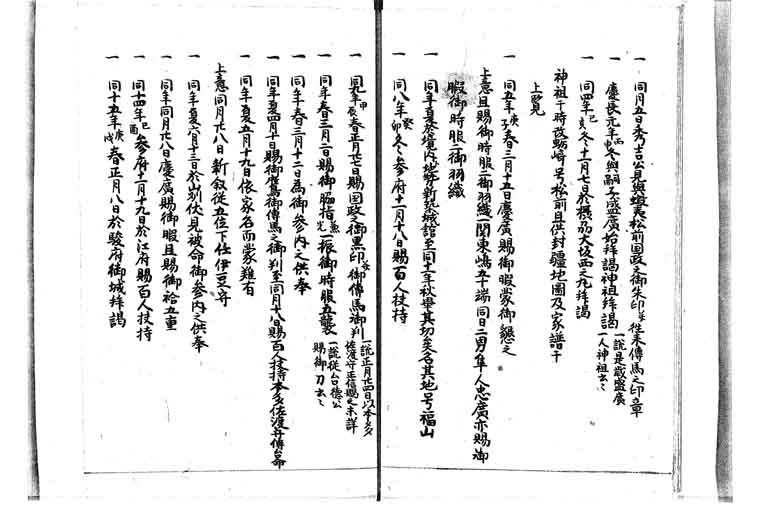 一 同月五日秀吉公見與蝦夷松前国政之御朱印并往来傳馬之印章
一 慶長元年丙申冬與嗣子盛廣始拜謁神祖拜謁一説是歳盛廣一人神祖云々
一 同四年己亥冬十一月七日於攝刕大坂西之丸拜謁
神祖于時改蛎崎号松前且供封疆地圖及家譜于
上覧
一 同五年庚子春二月十五日慶廣賜御暇蒙御懇之
上意且賜御時服二御羽織一関東嶋五十端同日二男隼人忠廣亦賜御
暇御時服二御羽織
一 同年夏於境内地勢新築城舘至同十一年秋畢其功矣名其地号福山
一 同八年癸卯冬参府十一月十八賜百人扶持
一 同九年甲辰春正月廿七日賜国政之御黒印并御傳馬御判一説正月廿四日以本多佐渡守正信賜之未詳
一 同年春三月二日賜御脇指一振御時服五襲一説従台徳公賜御刀云々
一 同年春三月十二日為御参内之供奉
一 同年夏四月十日賜御鷹御傳馬之御判至同月十八日賜百人扶持本多佐渡守傳台命
一 同年夏五月十九日依家名而蒙難有
上意同月廿八日新叙従五位下任伊豆守
一 同年夏六月十三日於山刕伏見被命御参内之供奉
一 同年同月廿八日慶廣賜御暇且賜御袷五重
一 同十四年己酉参府十一月十九日於江府賜百人扶持
一 同十五年庚戌春正月八日於駿府御城拜謁